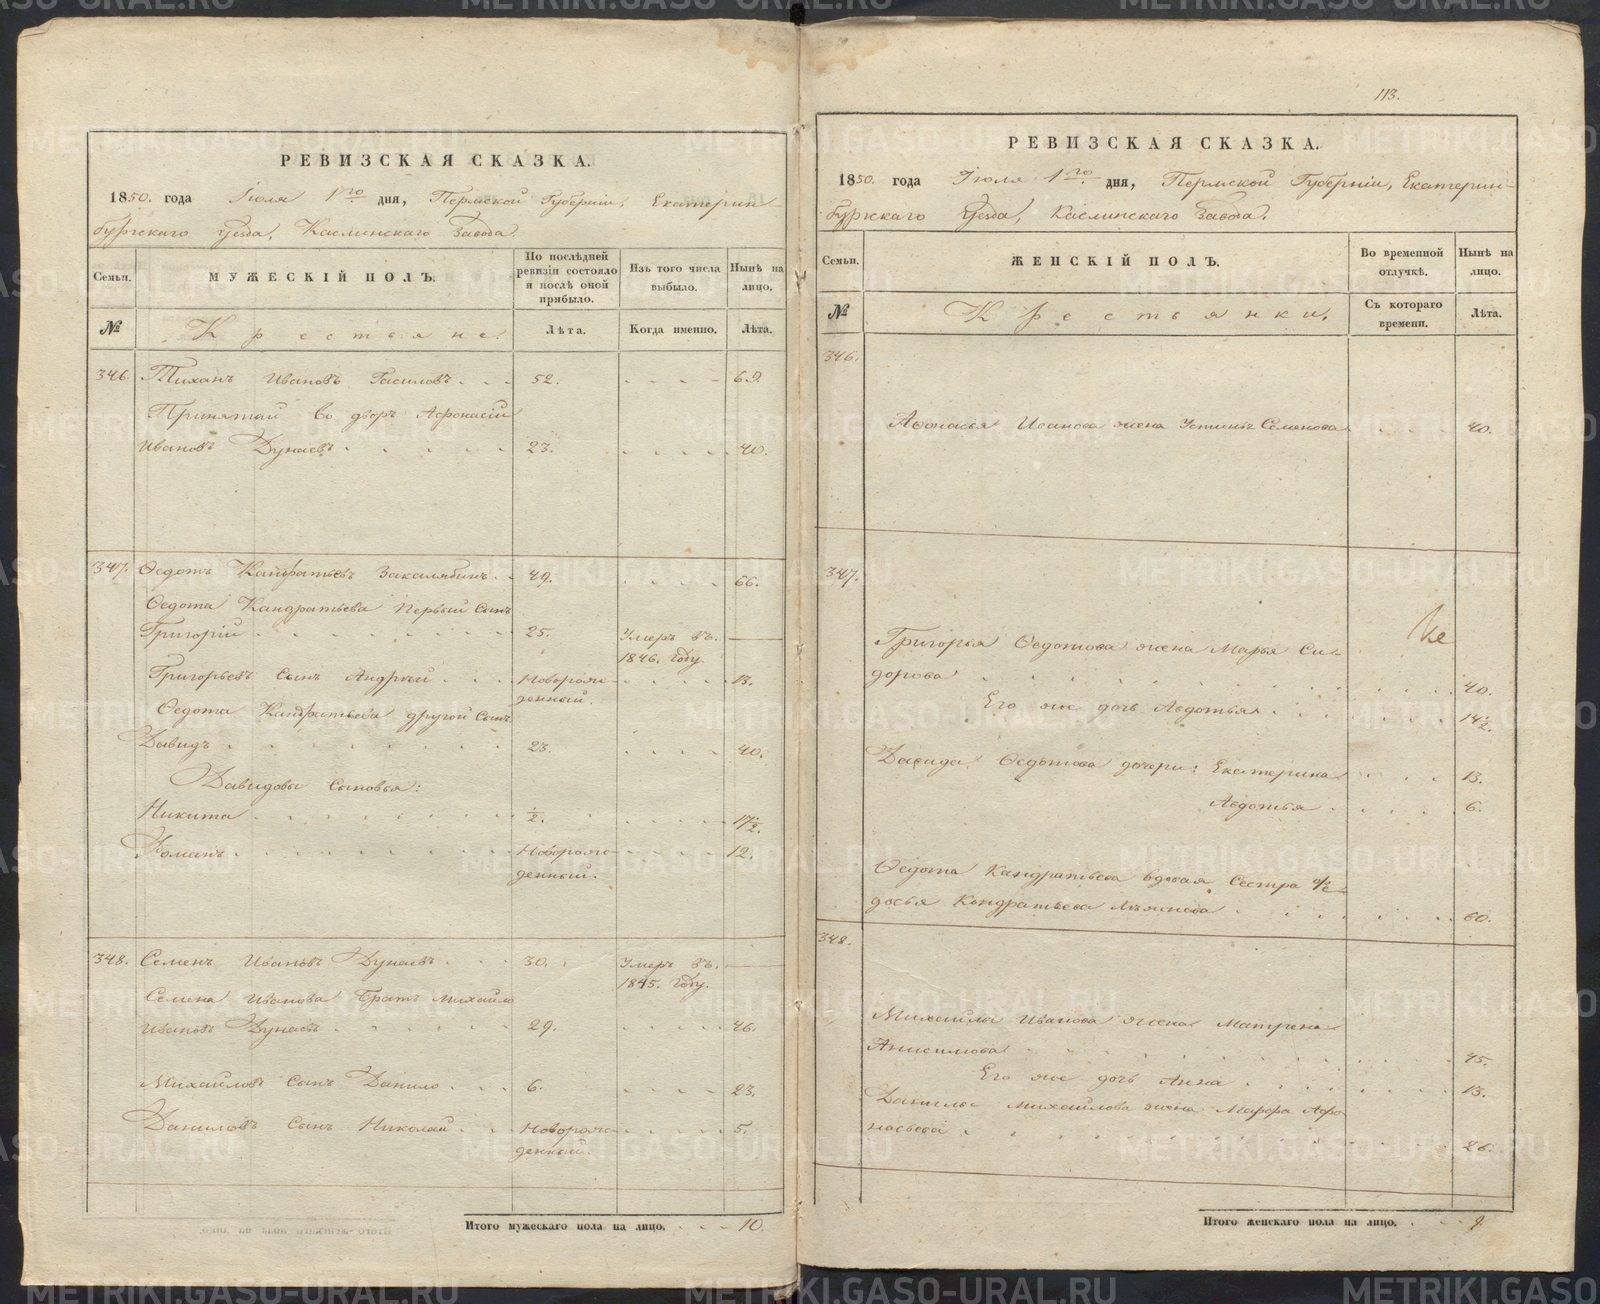 113.
РЕВИЗСКАЯ СКАЗКА.
1850. года Іюля 1го дня, Пермской Губерніи, Екатерин-
бургскаго Уезда, Каслинскаго Завода.
Семьи.
МУЖЕСКІЙ ПОЛЪ.
По послѣдней ревизіи состояло и послѣ оной прибыло.
Изъ того числа выбыло.
Нынѣ на лицо.
№
Крестьяне.
Лѣта.
Когда именно.
Лѣта.
346. Тихонъ Ивановъ 52. 69.
Принятый во дворъ Афонасій
Ивановъ Дунаевъ 23. 40.
347. Ѳедотъ Кандратьевъ 49. 66.
Ѳедота Кандратьева первый сынъ
Григорій 25. Умеръ въ
1846. году.
Григорьевъ сынъ Андрей Новорож-
денный. 13.
Ѳедота Кандратьева другой сынъ
Давидъ 23. 40.
Давыдовы сыновья:
Никита ½. 17½.
Романъ Новорож-
денный. 12.
348. Семенъ Ивановъ Дунаевъ 30. Умеръ въ
1845. году.
Семена Иванова братъ Михайло
Ивановъ Дунаевъ 29. 46.
Михайловъ сынъ Данило 6. 23.
Даниловъ сынъ Николай Новорож-
денный. 5.
Итого мужескаго пола на лицо. 10.
РЕВИЗСКАЯ СКАЗКА.
1850. года Іюля 1го дня, Пермской Губерніи, Екатерин-
бургскаго Уезда, Каслинскаго Завода.
Семьи.
ЖЕНСКІЙ ПОЛЪ.
Во временной отлучкѣ.
Нынѣ на лицо.
№
Крестьянки.
Съ котораго времени.
Лѣта.
346.
Афонасья Иванова жена Устинья Семенова 40.
347.
Григорья Ѳедотова жена Марья Си-
дорова 40.
Его же дочь Авдотья 14½.
Давида Ѳедотова дочери: Екатерина 13.
Авдотья 6.
Ѳедота Кандратьева вдовая сестра Ѳе-
досья Кондратьева 60.
348.
Михайла Иванова жена Матрена
Анисимова 45.
Его же дочь Анна 13.
Данилы Михайлова жена Марфа Афо-
насьева 26.
Итого женскаго пола на лицо. 9.
METRIKI.GASO-URAL.RU